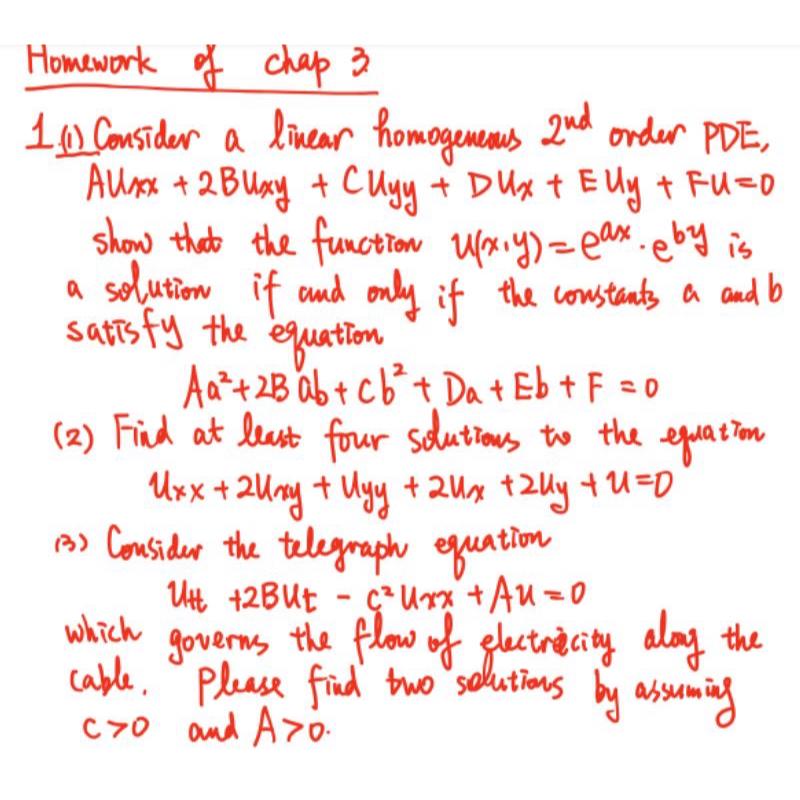 Homework of chap 3
1 (1) Consider a linear homogeneous 2nd order PDE,
AUxx + 2BUxy + CUyy + DUx + EUy + FU=0
show that the function U(x,y)=e^ax · e^by is
a solution if and only if the constants a and b
satisfy the equation
Aa²+2Bab+Cb²+Da+Eb+F=0
(2) Find at least four solutions to the equation
Uxx+2Uxy+Uyy+2Ux+2Uy+U=0
(3) Consider the telegraph equation
Utt+2BUt-c²Uxx+AU=0
which governs the flow of electricity along the
cable. Please find two solutions by assuming
c>0 and A>0.